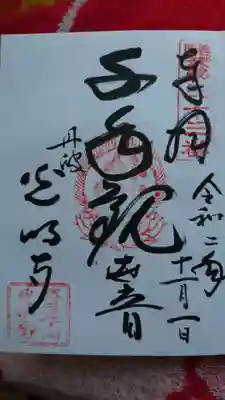 奉拝
令和二年
十一月一日
千手観世音
丹波
光明寺